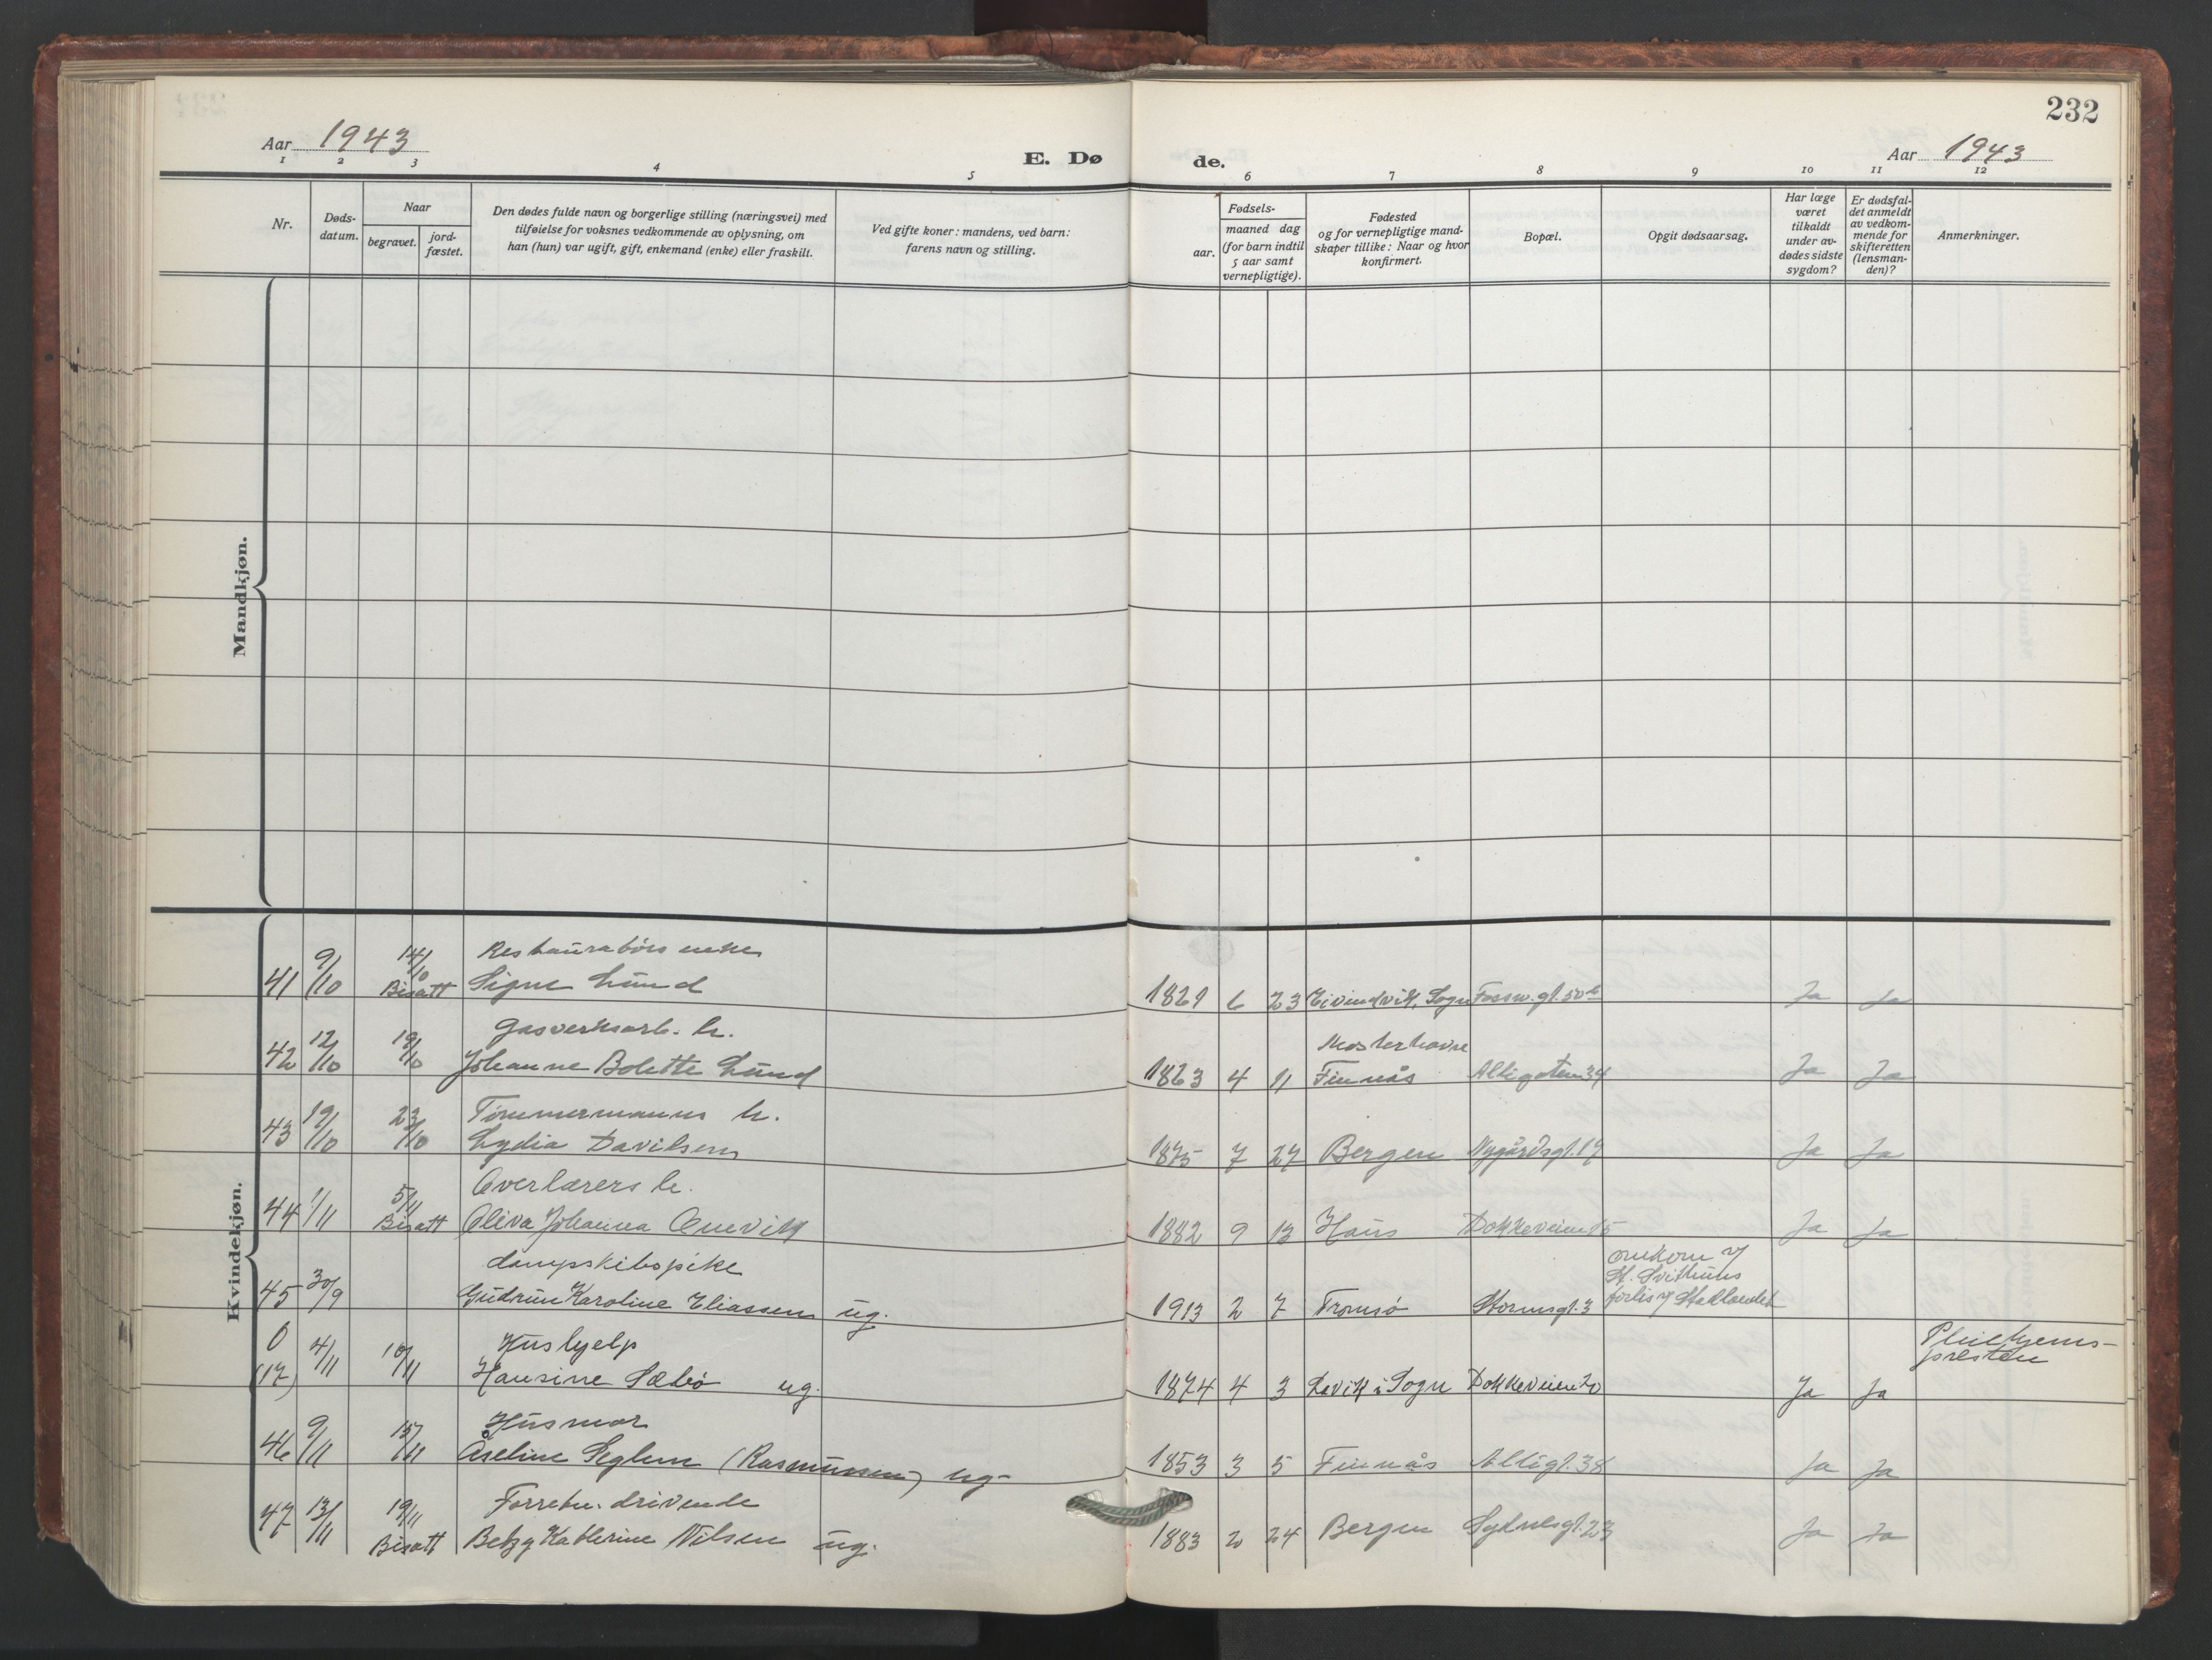 232
Aar 1943
E. Dø de.
Aar 1943
1 2 3 4 5 6 7 8 9 10 11 12
Nr.
Døds-
datum.
Naar
begravet.
jord-
fæstet.
Den dødes fulde navn og borgerlige stilling (næringsvei) med
tilføielse for voksnes vedkommende av oplysning, om
han (hun) var ugift, gift, enkemand (enke) eller fraskilt.
Ved gifte koner: mandens, ved barn:
farens navn og stilling.
Fødsels-
aar.
maaned dag
(for barn indtil
5 aar samt
vernepligtige).
Fødested
og for vernepligtige mand-
skaper tillike: Naar og hvor
konfirmert.
Bopæl.
Opgit dødsaarsag.
Har læge
været
tilkaldt
under av-
dødes sidste
sygdom?
Er dødsfal-
det anmeldt
av vedkom-
mende for
skifteretten
(lensman-
den)?
Anmerkninger.
Mandkjøn.
Kvindekjøn.
Restauratørs enke
41 9/10 14/10 Bisatt Signe Lund 6 23 Eivindvik, Sogn Ja Ja
Gasverksarb. h.
42 12/10 19/10 Johanne Bolette Lund 1863 4 11 Mosterhavn
Finnås Allégaten 34 Ja Ja
Tømmermanns h.
43 19/10 23/10 Lydia Davilsen 1875 7 27 Bergen Nygårdsgt. 19 Ja Ja
Overlærers h.
44 1/11 5/11 Bisatt Oliva Johanna 1882 9 13 Haus Dokkeveien 15 Ja Ja
dampskibspike
45 30/9 Gudrun Karoline Eliassen ug. 1913 2 7 Tromsø Stormsgt. 3 omkom v/
St. Svithuns
forlis v/ Stadlandet
Hushjelp
0 (17) 4/11 10/11 Hansine Sæbø ug. 1874 4 3 Lavik i Sogn Dokkeveien 20 Ja Ja Pleiehjems-
presten
Husmor
46 9/11 15/11 Åseline Seglem (Rasmussen) ug. 1853 3 5 Finnås Allégt. 38 Ja Ja
Forretn. drivende
47 13/11 19/11 Bisatt Betzy Katherine Nilsen ug. 1883 2 24 Bergen Sydnesgt. 23 Ja Ja